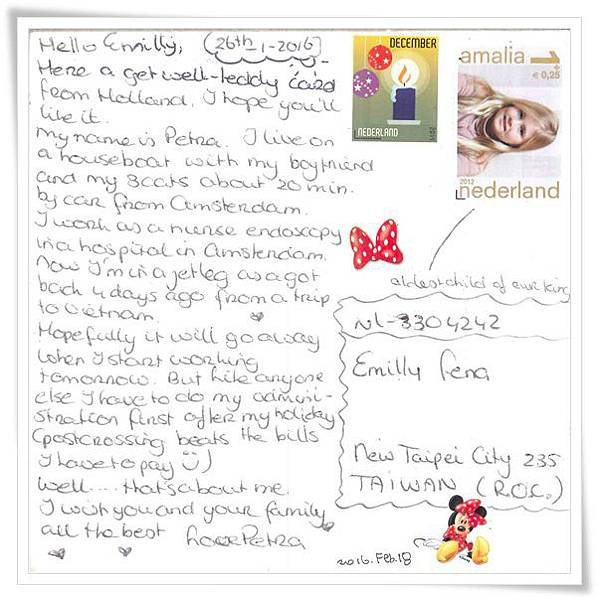 Hello Emilly, (26th-1-2016)
Here a get well-teddy card
from Holland. I hope you'll
like it.
My name is Petra. I live on
a houseboat with my boyfriend
and my 3 cats about 20 min.
by car from Amsterdam.
I work as a nurse endoscopy
in a hospital in Amsterdam.
Now I'm in a jetleg as a got
back 4 days ago from a trip
to Vietnam.
Hopefully it will go away
when I start working
tomorrow. But like anyone
else I have to do my admini-
stration first after my holiday
(postcrossing beats the bills
I have to pay)
Well.... that's about me.
I wish you and your family
all the best Love Petra
DECEMBER
NEDERLAND
amalia 1
+
€ 0,25
2012
nederland
oldest child of our king
NL-3304242
Emilly Feng
New Taipei City 235
TAIWAN (R.O.C.)
2016.Feb.18